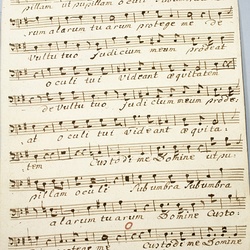 pillam ut pupillam oculi
rum alarum tuarum protege me. de
vultu tuo Judicium meum prodeat
oculi tui videant æquitatem
de vultu tuo Judicium meum prode
at oculi tui videant æquita:
tem Custodi me Domine ut pu:
pillam oculi Sub umbra Sub umbra
alarum tuarum Domine Custo:
me Custodi me Domine